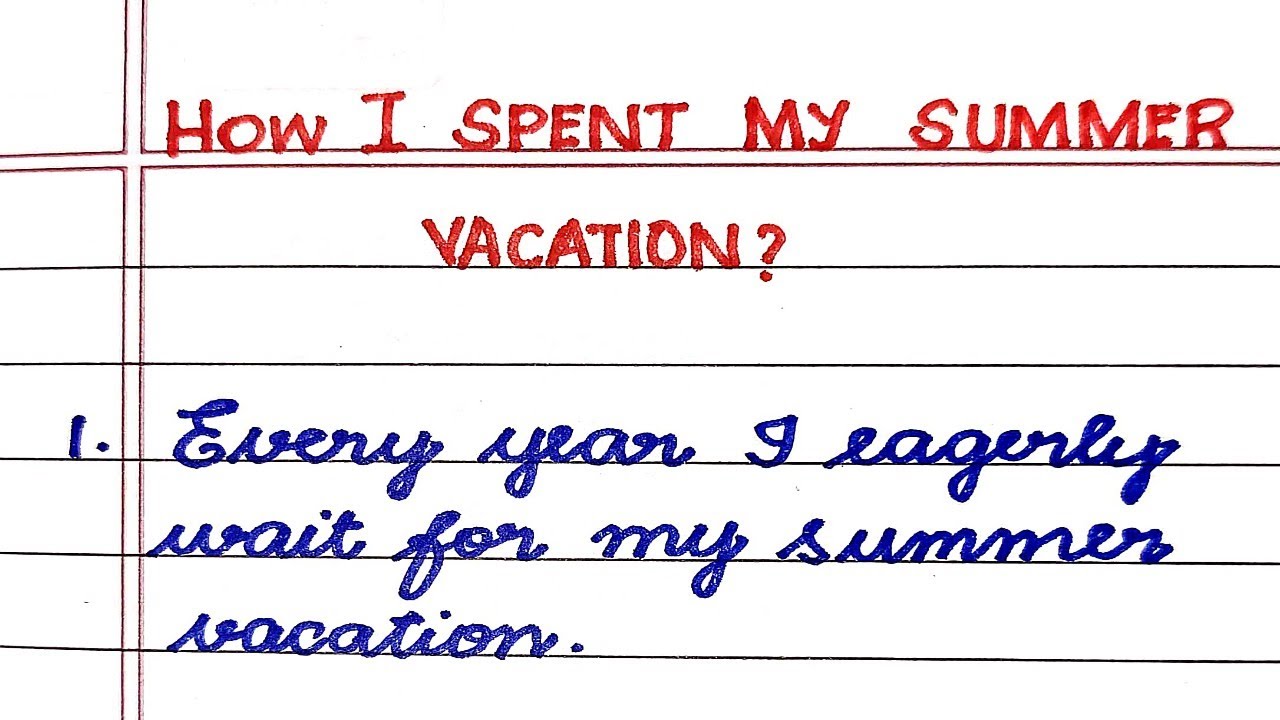 HOW I SPENT MY SUMMER
VACATION?
1. Every year I eagerly
wait for my summer
vacation.